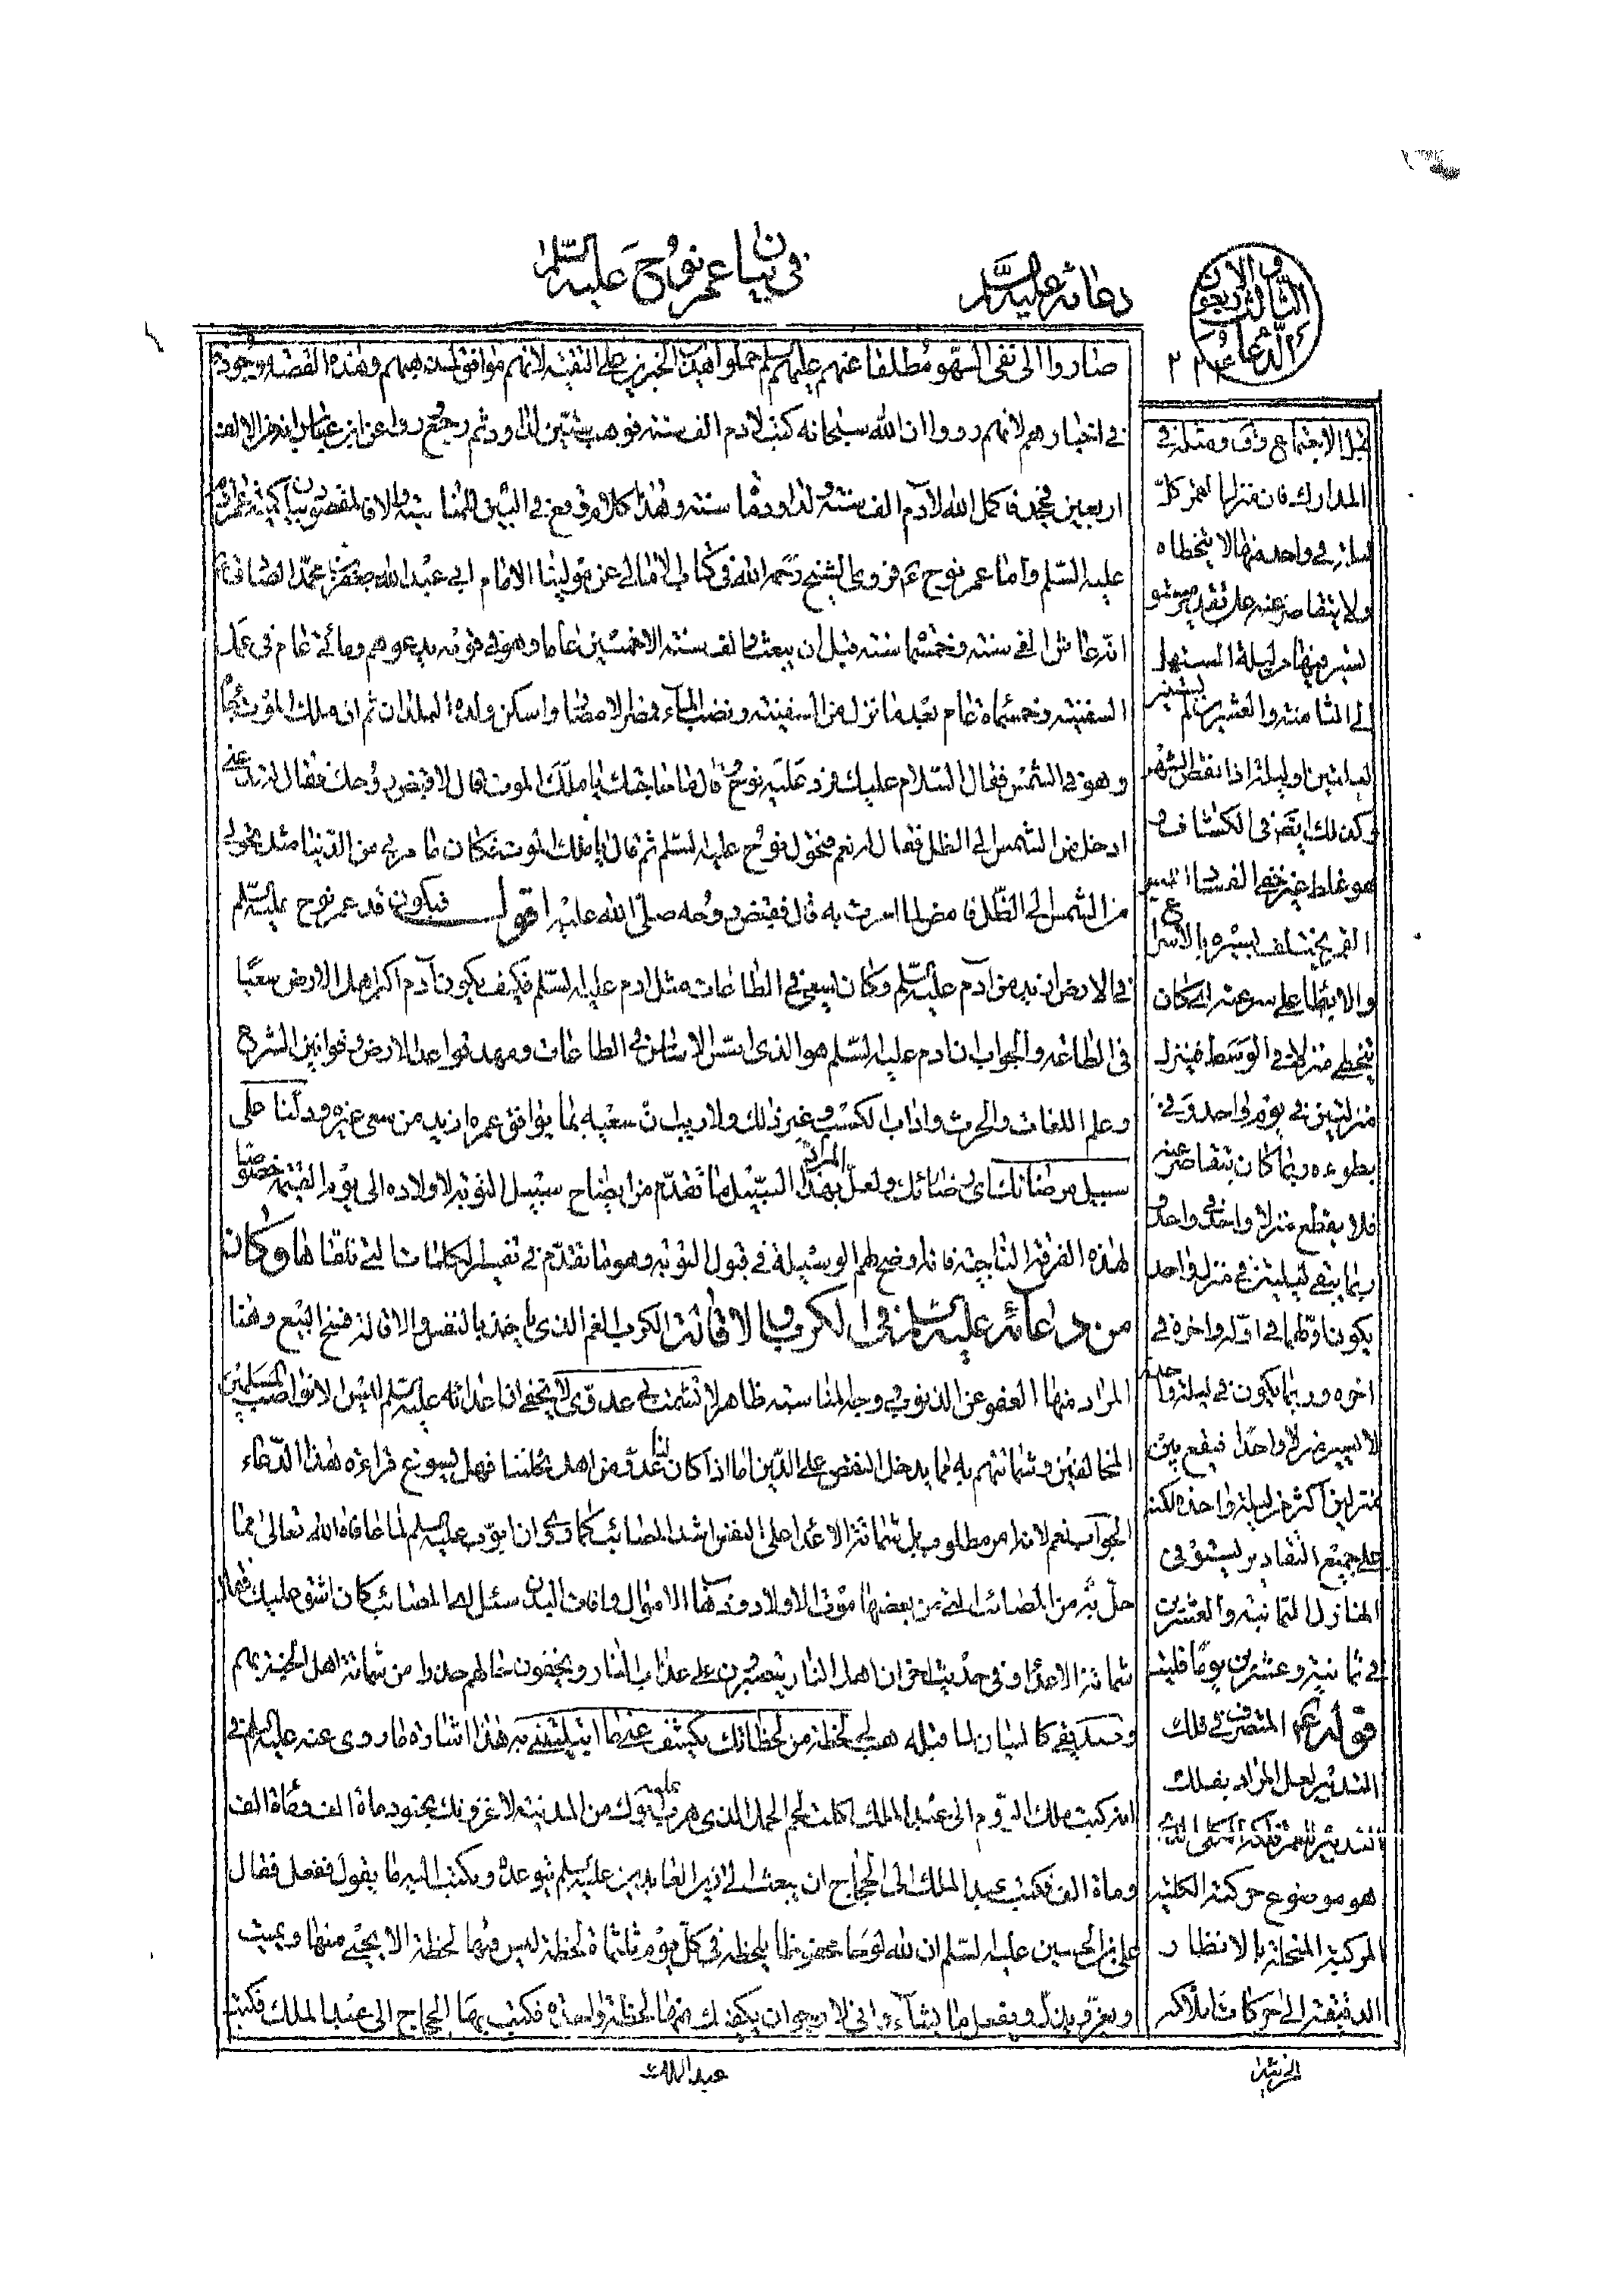 في بيان عمر نوح عليه السلم
دعائه عليه السلم
الدعاء الثالث والاربعون
٢٢٤
صاروا الى نفى السهو مطلقا عنهم عليهم السلم حملوا هذين الخبرين على التقية لانهم موافق لمذهبهم وهذه القصة موجودة
في اخبارهم لانهم رووا ان الله سبحانه كتب لادم الف سنة فوهب ستين لداود ثم رجع رووا عن ابن عباس انه من الالف
اربعين فجحد فاكمل الله لادم الف سنة ولداود مأة سنة وهذا كلام وقع في البين للمناسبة والا فالمقصود بيان كمية عمر نوح
عليه السلم واما عمر نوح ع فروى الشيخ رحمه الله في كتاب الامالي عن مولينا الامام ابي عبد الله جعفر بن محمد الصادق ع
انه عاش الفي سنة وخمسمأة سنة قبل ان يبعث والف سنة الا خمسين عاما وهو في قومه يدعوهم ومائتي عام في عمل
السفينة وخمسمأة عام بعد ما نزل من السفينة ونضب الماء ومصر الامصار واسكن ولده البلدان ثم ان ملك الموت جاءه
وهو في الشمس فقال السلام عليك فرد عليه نوح ع قال ما جاء بك يا ملك الموت قال لاقبض روحك فقال له تدعني
ادخل من الشمس الى الظل فقال له نعم فتحول نوح عليه السلم ثم قال يا ملك الموت فكان ما مر بي من الدنيا مثل تحولي
من الشمس الى الظل فامض لما امرت به قال فقبض روحه صلى الله عليه اقول فيكون قد عمر نوح عليه السلم
في الارض ازيد من آدم عليه السلم وكان سعى في الطاعات مثل ادم عليه السلم فكيف يكون آدم اكثر اهل الارض سعيا
في الطاعة والجواب ان ادم عليه السلم هو الذى اسس الاساس في الطاعات ومهد قواعد الارض وقوانين الشرع
وعلم اللغات والحرث واداب الكسب وغير ذلك ولا ريب ان سعيه بما يوافق عمره ازيد من سعى غيره ودلنا على
سبيل مرضاتك اي رضائك ولعل المراد بهذا السبيل ما تقدم من ايضاح سبيل التوبة لاولاده الى يوم القيمة خصوصا
لهذه الفرقة الناجية فانه اوضح لهم الوسيلة في قبول التوبة وهو ما تقدم في تفسير الكلمات التي تلقاها وكان
من دعائه عليه السلم في الكرب والاقالة الكرب الغم الذى ياخذ بالنفس والاقالة فسخ البيع وهنا
المراد منها العفو عن الذنوب ووجه المناسبة ظاهر لا تشمت بي عدوى لا يخفى ان اعدائه عليه السلم ليس الا نواصب المسلمين
المخالفين وشماتتهم به مما يدخل النقص على الدين اما اذا كان لنا عدو من اهل نحلتنا فهل يسوغ قراءة هذا الدعاء
الجواب نعم لانه امر مطلوب بل شماتة الاعداء على النفس اشد المصائب كما روى ان ايوب عليه السلم لما عافاه الله تعالى مما
حل به من المصائب التي من بعضها موت الاولاد وذهاب الاموال وافات البدن سئل ايها المصائب كان اشق عليك فقال
شماتة الاعداء وفى حديث اخر ان اهل النار يصبرون على عذاب النار ويخفون حالهم حذرا من شماتة اهل الجنة بهم
وصديقي كالبيان لما قبله هب لي لحظة من لحظاتك يكشف عني ما ابتليتني به هذا اشارة ما روى عنه عليه السلم في
انه كتب ملك الروم الى عبد الملك اكلت لحم الجمل الذى هرب عليه ابوك من المدينة لاغزونك بجنود مأة الف ومأة الف
ومأة الف فكتب عبد الملك الى الحجاج ان يبعث الى زين العابدين عليه السلم يتوعده ويكتب اليه ما يقول ففعل فقال
على بن الحسين عليه السلم ان لله لوحا محفوظا يلحظه في كل يوم ثلثمأة لحظة ليس منها لحظة الا يحيى منها ويميت
ويعز ويذل ويفعل ما يشاء واني لارجو ان يكفيك منها لحظة واحدة فكتب بها الحجاج الى عبد الملك فكتب
عبد الملك
قبل الاجتماع وق ومثله في
المدارك فان منزلها القمر كل
ليلة في واحد منها لا يتخطاه
ولا يتقاصر عنه على تقدير مستو
يسير فيها من ليلة المستهل
الى الثامنة والعشرين ثم يستتر
ليلتين او ليلة اذا نقص الشهر
وكذلك ايضا في الكشاف و
هو غلط غير خفي الفساد
القمر يختلف سيره بالاسراع
والابطاء على سرعته ان كان
يتخطى منزلا في الوسط فينزل
منزلتين في يوم واحد وفي
بطوءه ربما كان يتقاصر عنه
فلا يقطع منزلا واحدا في واحد
ربما يبقى ليلتين في منزل واحد
يكون اولهما في اوله واخره في
اخره وربما يكون في ليلة واحدة
لا يسير منزلا واحدا فيقع بين
منزلين اكثر من ليلة واحدة لكنه
على جميع التقادير يستوفى
المنازل الثمانية والعشرين
في ثمانية وعشرين يوما وليلة
قوله ع المتصرف في فلك
التدبير لعل المراد بفلك
هو موضوع حركته الكلية
المركبة المنحلة بالانظار
الدقيقة الى حركات